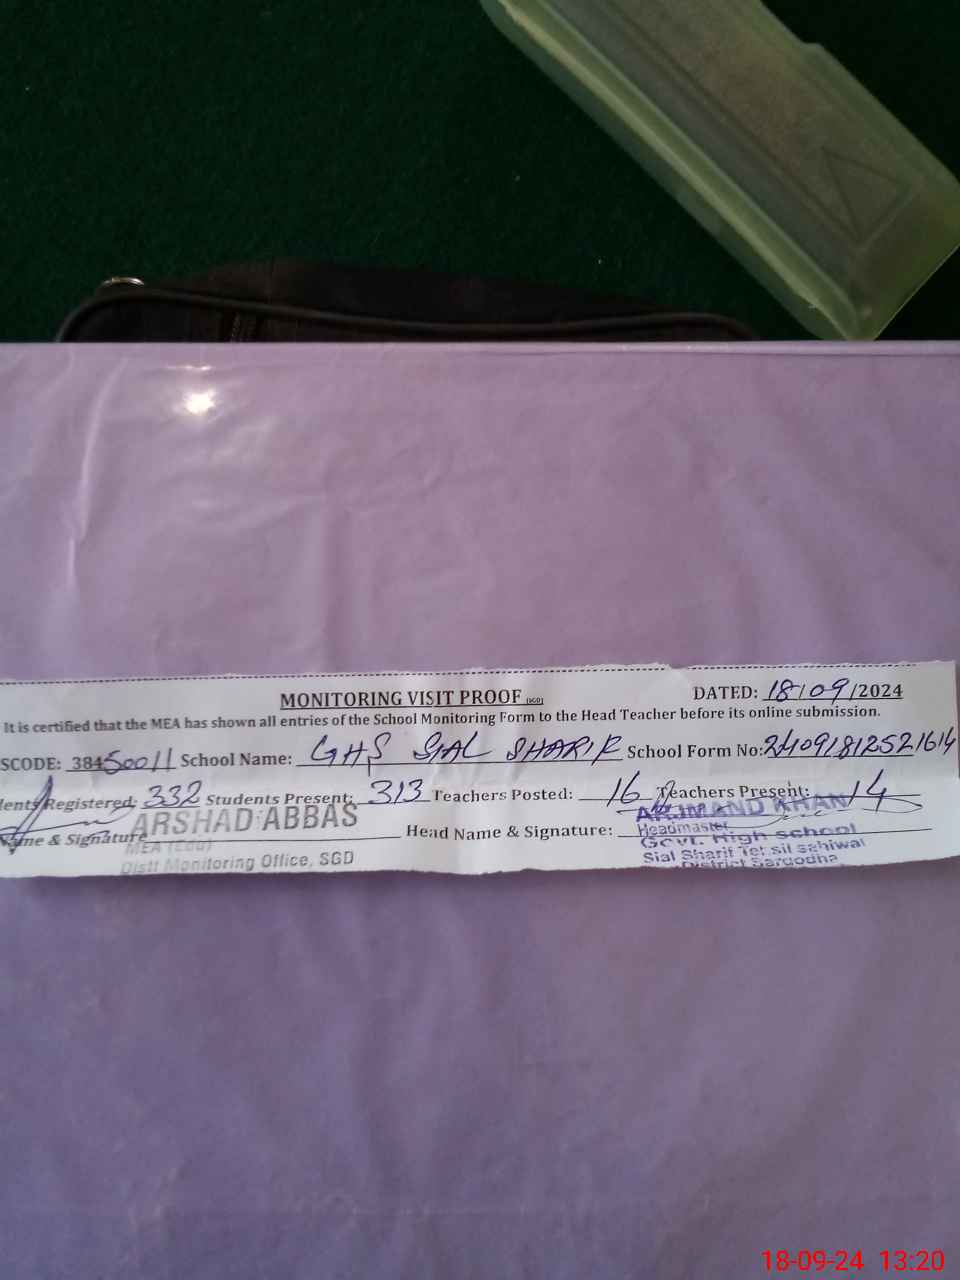 MONITORING VISIT PROOF (SGD) DATED: 18/09/2024
It is certified that the MEA has shown all entries of the School Monitoring Form to the Head Teacher before its online submission.
SCODE: 38450011 School Name: GHS SIAL SHARIF School Form No: 24091812521614
dents Registered: 332 Students Present: 313 Teachers Posted: 16 Teachers Present: 14
Name & Signature ARSHAD ABBAS Head Name & Signature: ARJMAND KHAN
MEA (Edu) Headmaster
Distt Monitoring Office, SGD Govt. High school
Sial Sharif Tehsil Sahiwal
District Sargodha
18-09-24 13:20